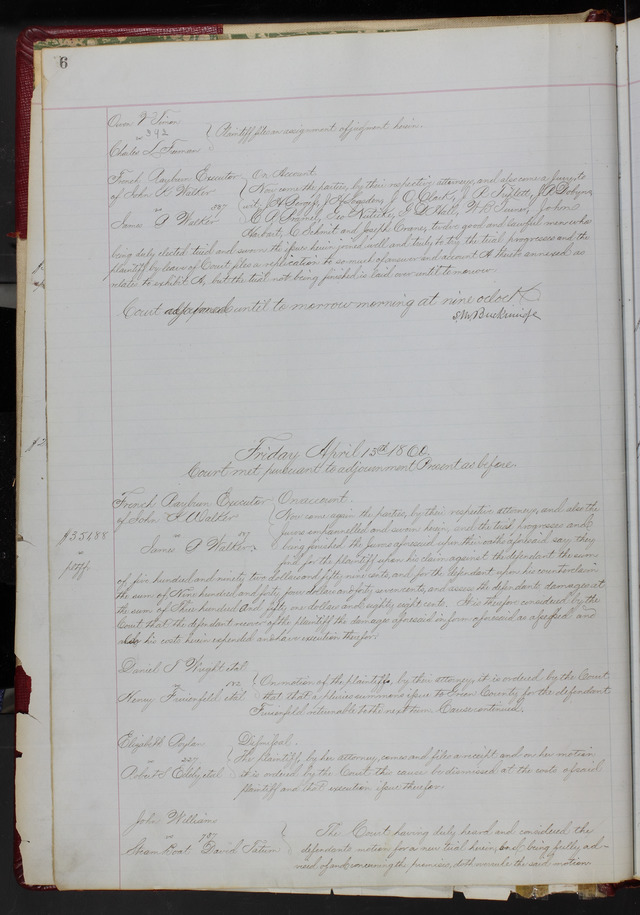 6
Owen
vs 342
Charles L
Plaintiff files an assignment of judgment herein.
French Rayburn Executor
of John A Walker
vs
James P Walker
On Account
Now come the parties, by their respective attorneys, and also come a jury, to
wit, J O Clark, J P
Geo W B Turner, John
C Schmit and Joseph Crane, twelve good and lawful men who
being duly elected tried and sworn the issue herein joined well and truly to try the trial progresses and, the
plaintiff by leave of Court files a replication to so much of answer and account A thereto annexed as
relates to exhibit A, but the trial not being finished is laid over until tomorrow.
Court adjourned until to morrow morning at nine oclock
Friday April 13th 1860.
Court met pursuant to adjournment Present as before.
$351.88
vs
ptff
French Rayburn Executor
of John A Walker
vs
James P Walker.
On account.
Now come again the parties, by their respective attorneys, and also the
jurors empannelled and sworn herein, and the trial progresses and
being finished the jurors aforesaid upon their oaths aforesaid say they
find for the plaintiff upon his claim against the defendant the sum
of five hundred and ninety two dollars and fifty nine cents, and for the defendant upon his counterclaim
the sum of Nine hundred and forty four dollars and forty seven cents, and assess the defendants damages at
the sum of Three hundred and fifty one dollars and eighty eight cents. It is therefore considered by the
Court that the defendant recover of the plaintiff the damages aforesaid in form aforesaid as assessed and
also his costs herein expended and have execution therefor.
Daniel J Wright etal
vs
Henry Finienfeld etal
On motion of the plaintiffs, by their attorney, it is ordered by the Court
that that a pluries summons issue to Green County for the defendant
Finienfeld returnable to the next term Cause continued.
Elizabeth
vs
Robert S Eddy etal
Dismissal.
The plaintiff, by her attorney, comes and files a receipt and on her motion
it is ordered by the Court this cause be dismissed at the costs of said
plaintiff and that execution issue therefor
John Williams
vs 787
Steam Boat David Tatum
The Court having duly heard and considered the
defendants motion for a new trial herein, and being fully ad-
vised of and concerning the premises, doth overrule the said motion